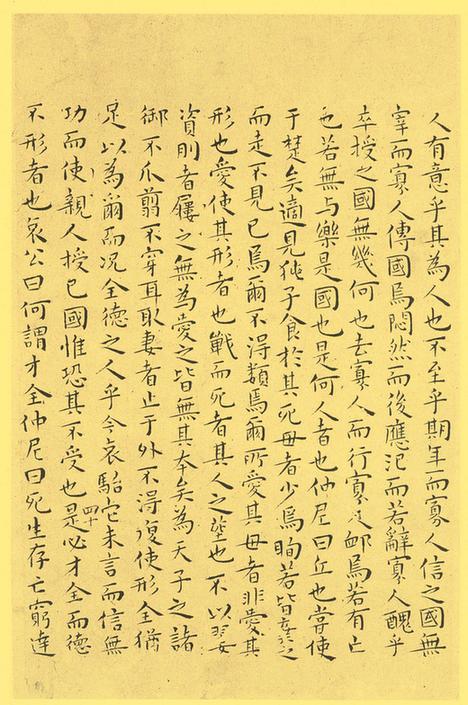 人有意乎其為人也不至乎期年而寡人信之國無
宰而寡人傳國焉悶然而後應氾而若辭寡人醜乎
卒授之國無幾何也去寡人而行寡人卹焉若有亡
也若無与樂是國也是何人者也仲尼曰丘也嘗使
于楚矣適見㹠子食於其死母者少焉眴若皆棄之
而走不見己焉爾不得類焉爾所愛其母者非愛其
形也愛使其形者也戰而死者其人之塟也不以翣
資刖者屨之無為愛之皆無其本矣為天子之諸
御不爪翦不穿耳取妻者止于外不得復使形全猶
足以為爾而況全德之人乎今哀駘它未言而信無
功而使親人授己國惟恐其不受也是必才全而德
四十
不形者也哀公曰何謂才全仲尼曰死生存亡窮達